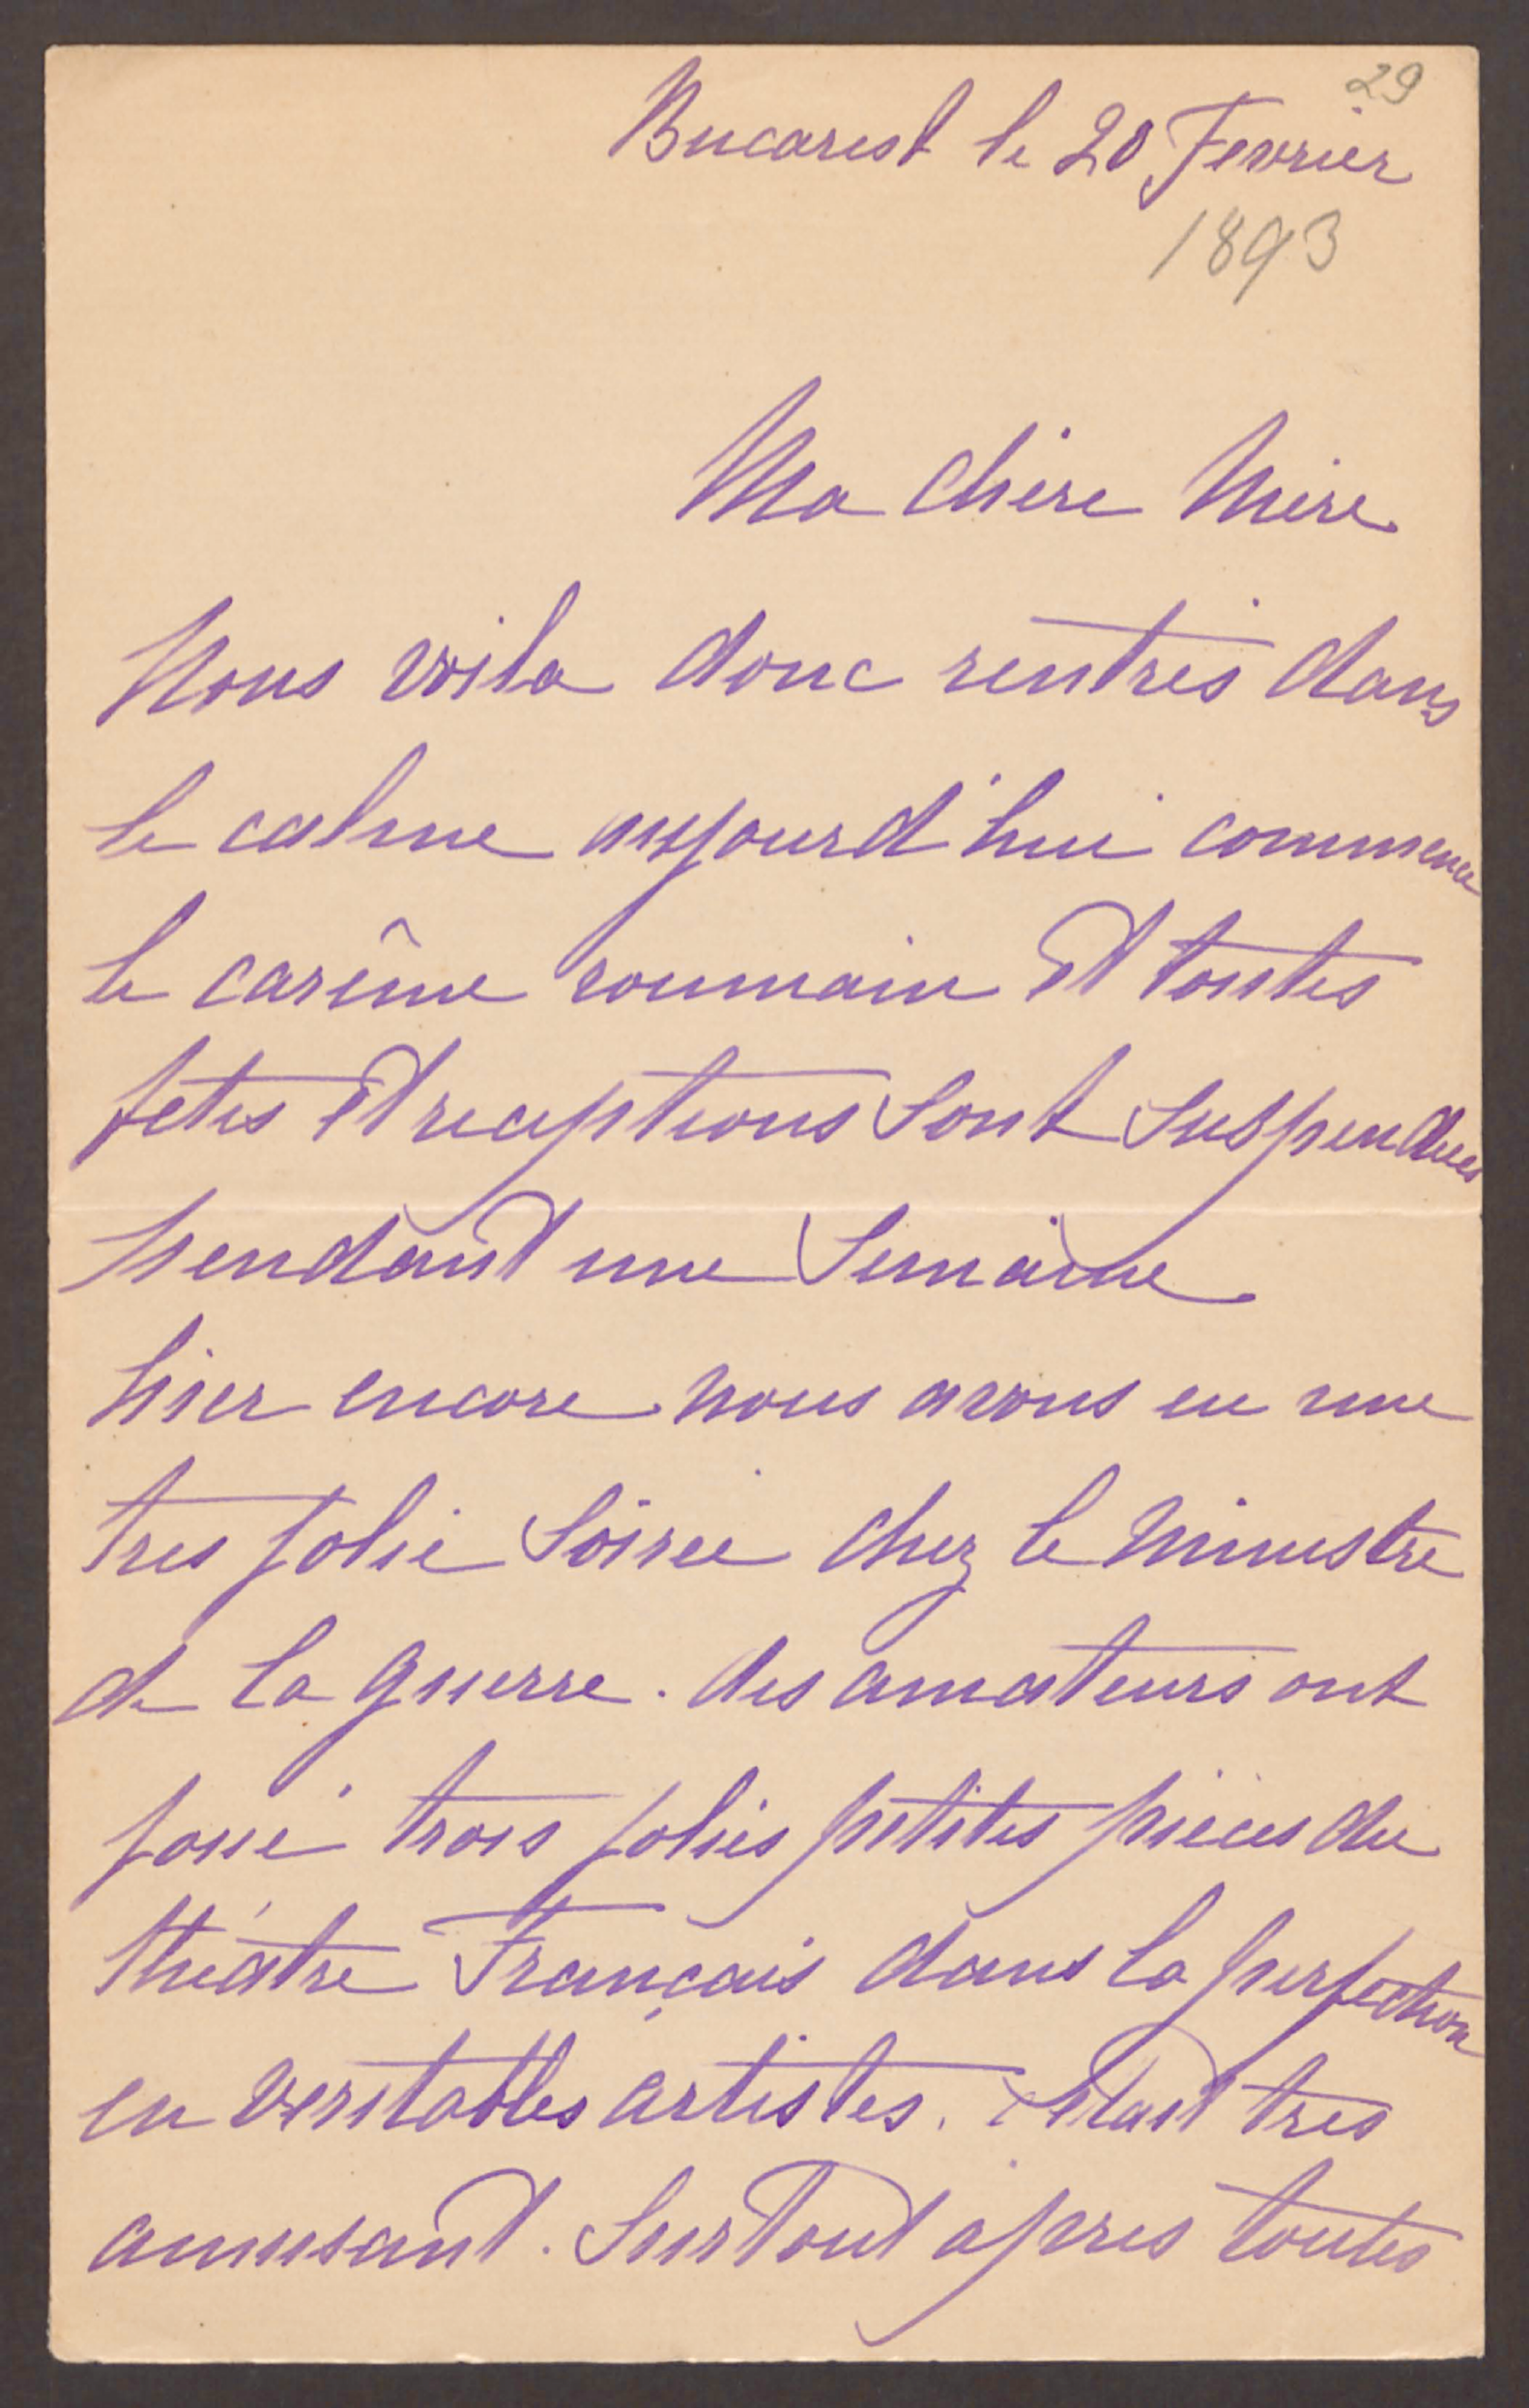 29
Bucarest le 20 Fevrier
1893
Ma chère Mère
Nous voila donc rentrés dans
le calme aujourd'hui commence
le carême roumain et toutes
fetes et receptions sont suspendues
pendant une Semaine
hier encore nous avons eu une
tres jolie Soiree chez le Ministre
de la guerre. des amateurs ont
joué trois jolies petites pièces du
théatre Français dans la perfection
en veritables artistes. c'etait tres
amusant. Surtout apres toutes